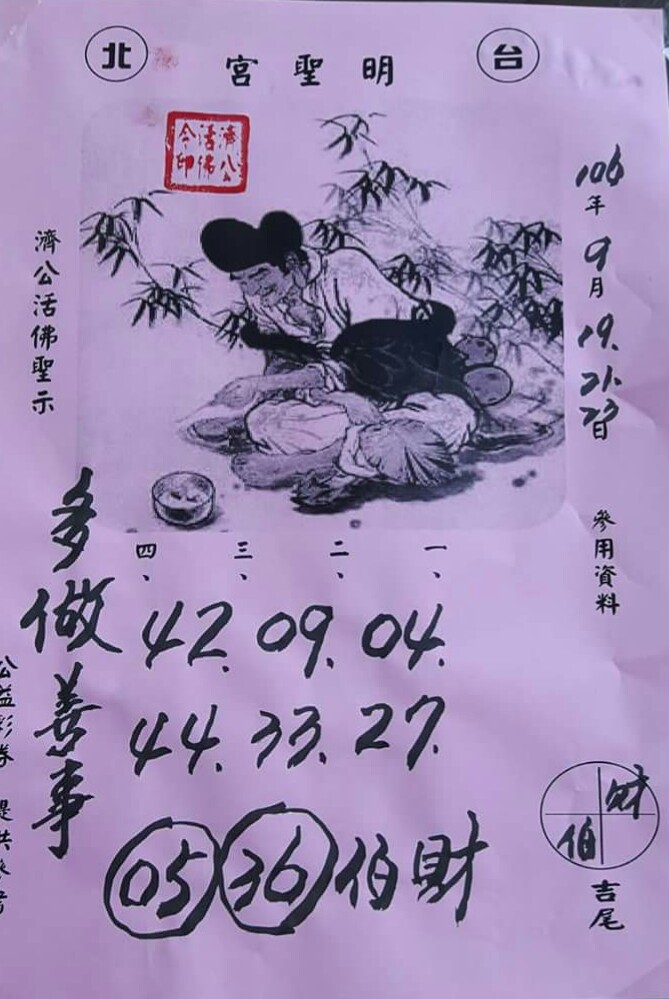 台北
明聖宮
濟公活佛
令印
106年9月19.21.23日
參用資料
濟公活佛聖示
一、
二、
三、
四、
04.
09.
42.
27.
33.
44.
多做善事
05 36 伯財
財
伯
吉尾
公益彩券 提供參考